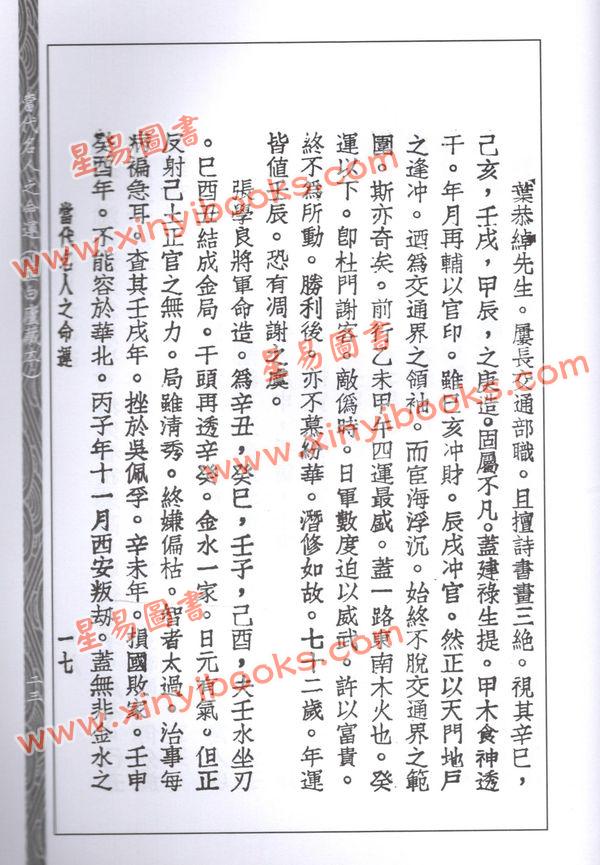 葉恭綽先生。屢長交通部職。且擅詩書畫三絶。視其辛巳，
己亥，壬戌，甲辰，之庚造。固屬不凡。蓋建祿生提。甲木食神透
干。年月再輔以官印。雖巳亥冲財。辰戌冲官。然正以天門地戶
之逢冲。迺爲交通界之領袖。而宦海浮沉。始終不脫交通界之範
圍。斯亦奇矣。前行乙未甲午四運最盛。蓋一路東南木火也。癸
運以下。卽杜門謝客。敵僞時。日軍數度迫以威武。許以富貴。
終不爲所動。勝利後。亦不慕紛華。潛修如故。七十二歲。年運
皆値壬辰。恐有凋謝之虞。
張學良將軍命造。爲辛丑，癸巳，壬子，己酉，夫壬水坐刃
。巳酉丑結成金局。干頭再透辛癸。金水一家。日元有氣。但正
反射己土正官之無力。局雖清秀。終嫌偏枯。智者太過。治事每
褊急耳。查其壬戌年。挫於吳佩孚。辛未年。損國敗家。壬申
癸酉年。不能容於華北。丙子年十一月西安叛劫。蓋無非金水之
當代名人之命運
一七
當代名人之命運
二三
星易圖書
www.xinyibooks.com
星易圖書
www.xinyibooks.com
星易圖書
www.xinyibooks.com